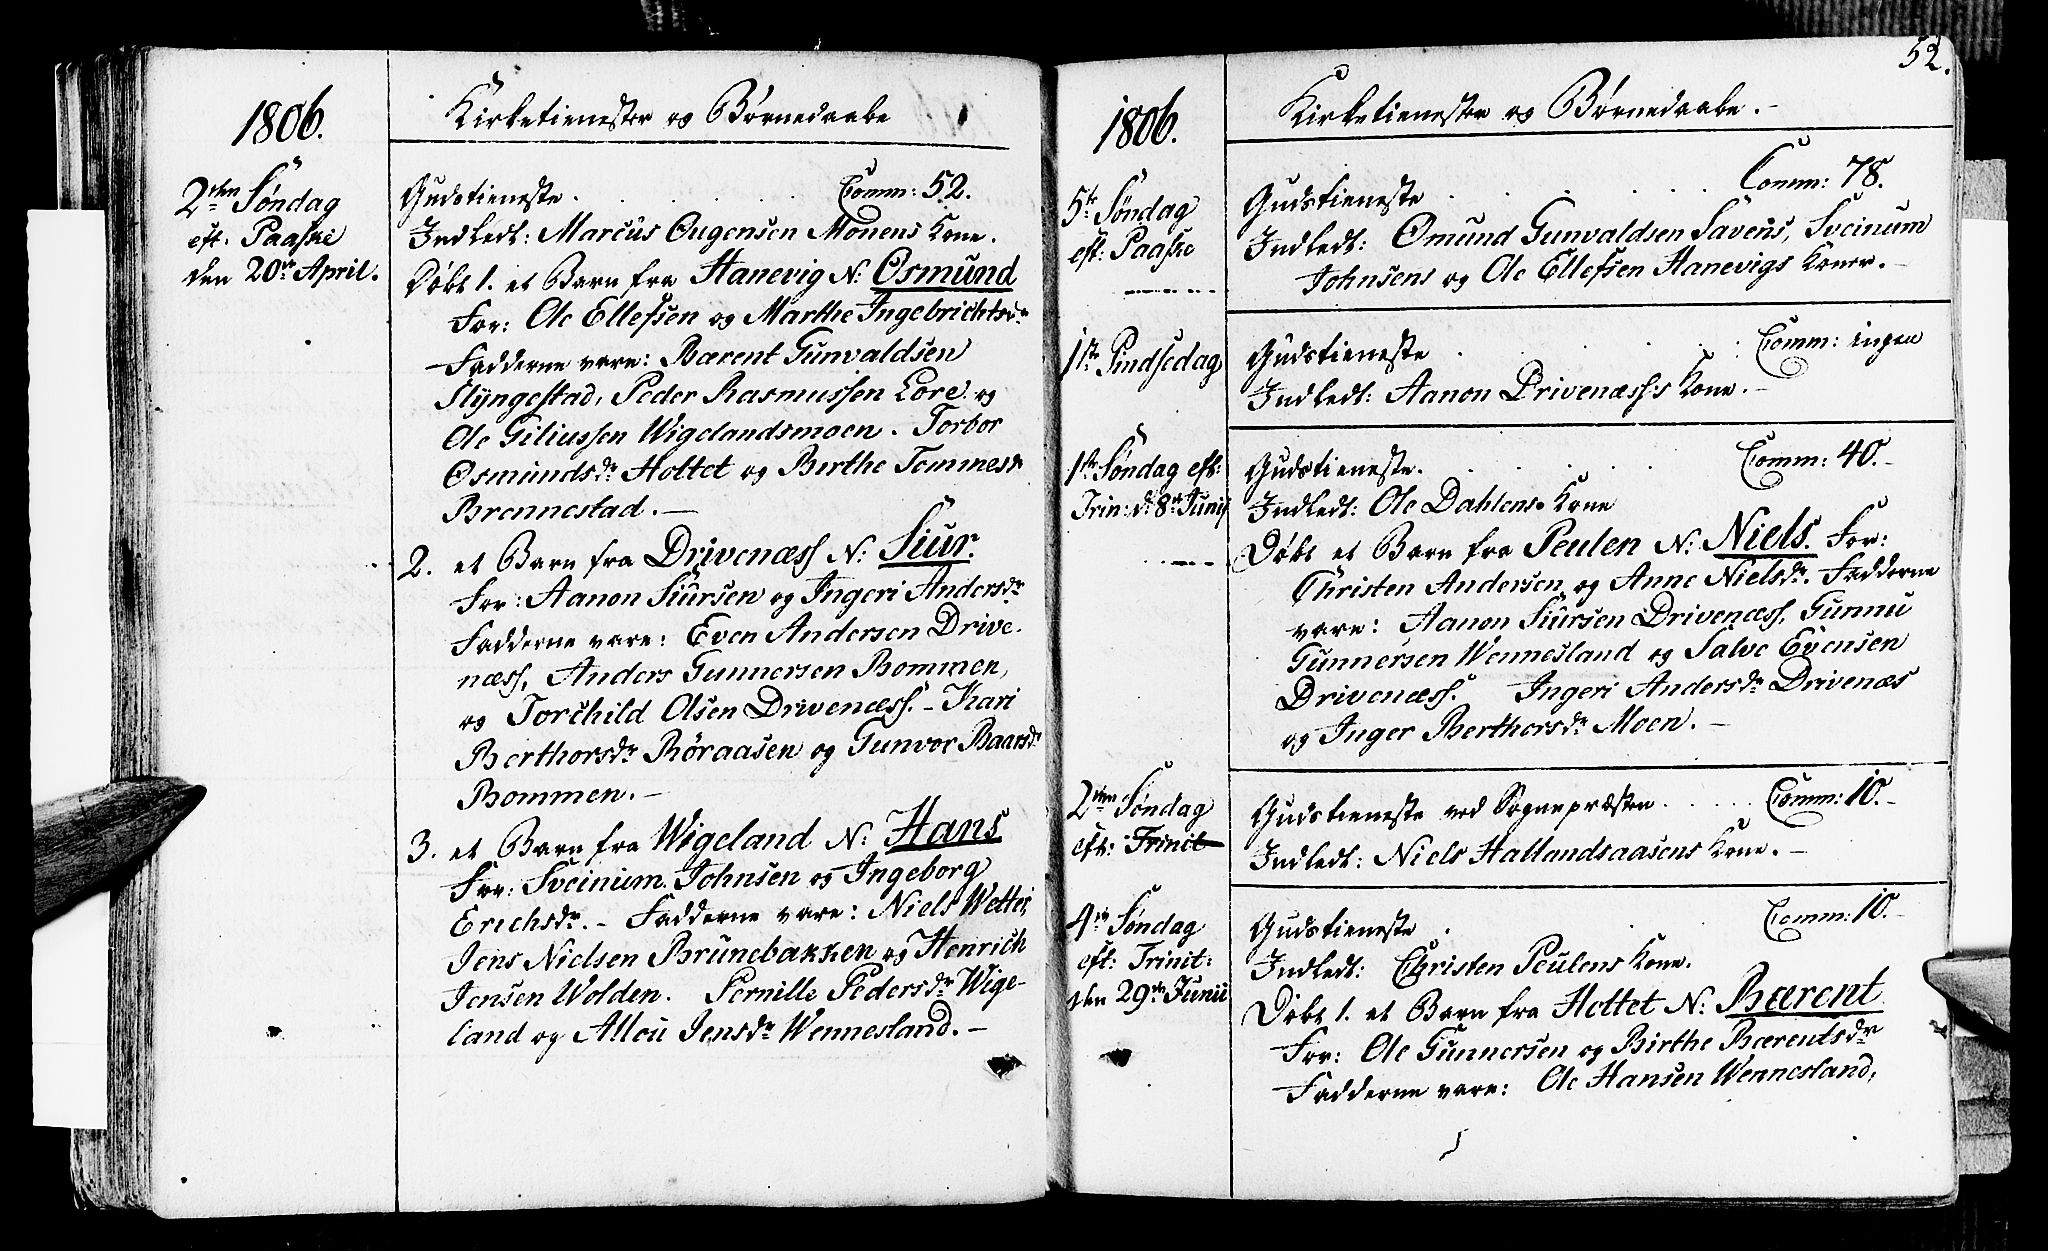 1806.
Kirketienester og Børnedaabe
2den Søndag
eft: Paaske
den 20de April.
Gudstieneste. Comm: 52.
Indledt: Marcus Ougensen Monens Kone.
Døbt 1. et Barn fra Hanevig N: Osmund
For: Ole Ellefsen og Marthe Ingebrichtsdr
Fadderne vare: Bærent Gunvaldsen
Slyngestad, Peder Rasmussen Lore og
Ole Giliussen Wigelandsmoen. Torbor
Osmundsdr Holtet og Birthe Tommesdr
Brennestad.—
2. et Barn fra Drivenæss N: Siur.
For: Aanon Siursen og Ingeri Andersdr
Fadderne vare: Even Andersen Drive-
næss, Anders Gunnersen Bommen,
og Torchild Olsen Drivenæss.- Kari
Berthorsdr Røraasen og Gunvor Baarsdr
Bommen.—
3. et Barn fra Wigeland N: Hans
For: Sveinum Johnsen og Ingeborg
Erichsdr.- Fadderne vare: Niels Wettei,
Jens Nielsen Brunebakken og Henrich
Jensen Wolden. Pernille Pedersdr Wige-
land og Alleu Jensdr Wennesland.—
52.
1806.
Kirketienester og Børnedaabe.-
5te Søndag
eft: Paaske
Gudstieneste Comm: 78.
Indledt: Omund Gunvaldsen Savens, Sveinum
Johnsens og Ole Ellefsen Hanevigs Koner.-
1ste Pindsedag
Gudstieneste Comm: ingen
Indledt: Aanon Drivenæss's Kone.-
1ste Søndag eft:
Trin: d: 8de Junij
Gudstieneste. Comm: 40.-
Indledt: Ole Dahlens Kone
Døbt et Barn fra Peulen N: Niels. For:
Christen Andersen og Anne Nielsdr. Fadderne
vare: Aanon Siursen Drivenæss, Gunnu
Gunnersen Wennesland og Salve Evensen
Drivenæss. Ingeri Andersdr Drivenæs
og Inger Berthorsdr Moen.—
2den Søndag
eft: Trinit
Gudstieneste ved Sognepræsten Comm: 10.-
Indledt: Niels Hallandsaasens Kone.-
4de Søndag
eft: Trinit:
den 29de Junii
Gudstieneste Comm: 10.-
Indledt: Christen Peulens Kone.
Døbt 1. et Barn fra Holtet N: Bærent
For: Ole Gunnersen og Birthe Bærentsdr
Fadderne vare: Ole Hansen Wennesland,